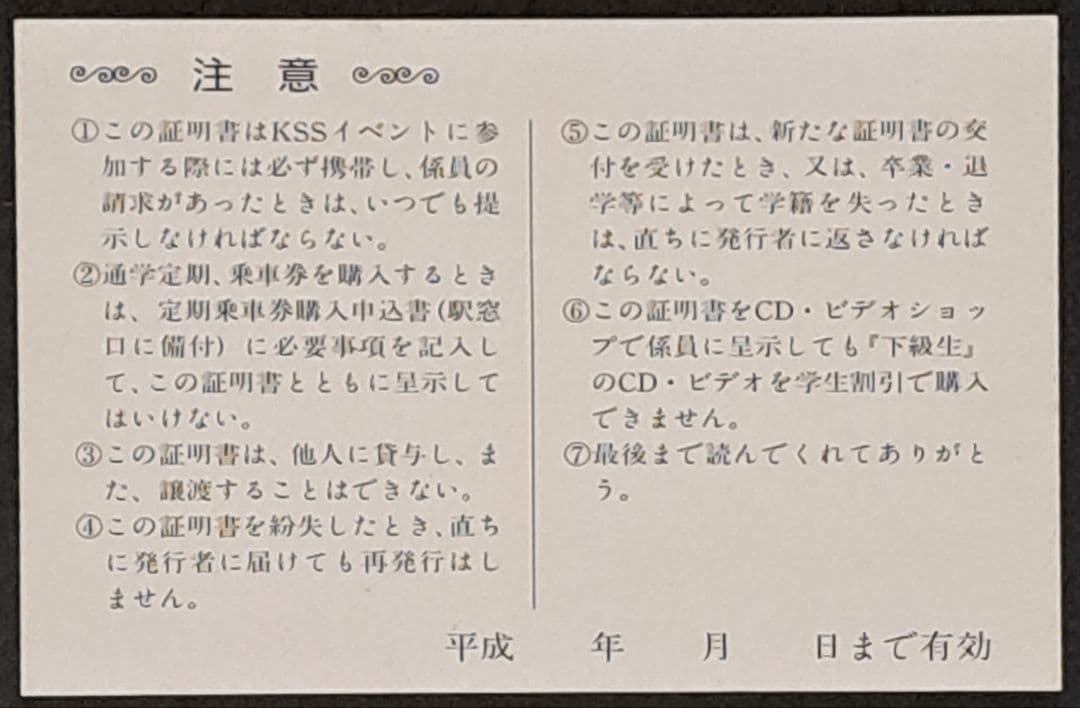 注意
①この証明書はKSSイベントに参
加する際には必ず携帯し、係員の
請求があったときは、いつでも提
示しなければならない。
②通学定期、乗車券を購入するとき
は、定期乗車券購入申込書(駅窓
口に備付)に必要事項を記入し
て、この証明書とともに呈示して
はいけない。
③この証明書は、他人に貸与し、ま
た、譲渡することはできない。
④この証明書を紛失したとき、直ち
に発行者に届けても再発行はし
ません。
⑤この証明書は、新たな証明書の交
付を受けたとき、又は、卒業・退
学等によって学籍を失ったとき
は、直ちに発行者に返さなければ
ならない。
⑥この証明書をCD・ビデオショッ
プで係員に呈示しても『下級生』
のCD・ビデオを学生割引で購入
できません。
⑦最後まで読んでくれてありがと
う。
平成 年 月 日まで有効